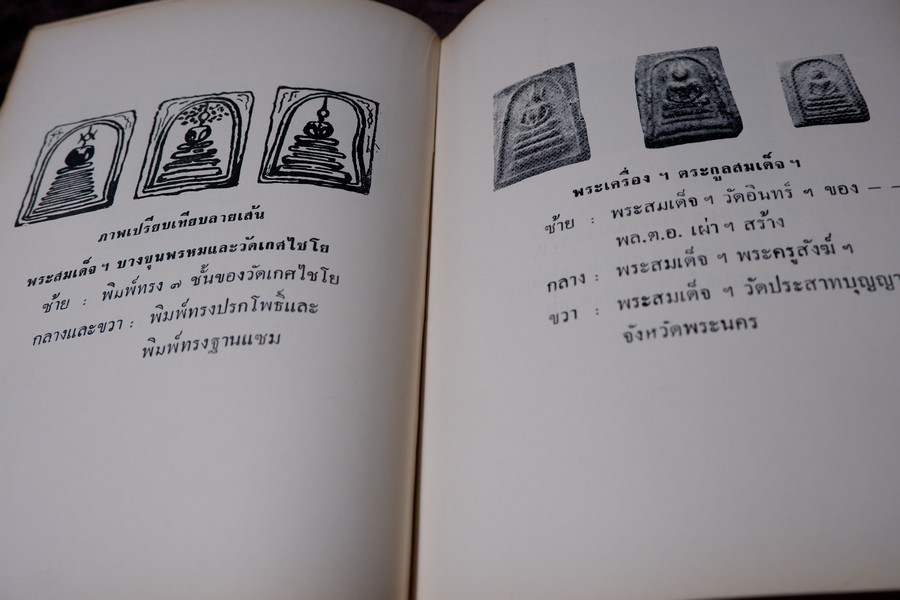 ภาพเปรียบเทียบลายเส้น
พระสมเด็จ ฯ บางขุนพรหมและวัดเกศไชโย
ซ้าย : พิมพ์ทรง ๗ ชั้นของวัดเกศไชโย
กลางและขวา : พิมพ์ทรงปรกโพธิ์และ
พิมพ์ทรงฐานแซม
พระเครื่อง ฯ ตระกูลสมเด็จ ฯ
ซ้าย : พระสมเด็จ ฯ วัดอินทร์ ฯ ของ – –
พล.ต.อ. เผ่า ฯ สร้าง
กลาง : พระสมเด็จ ฯ พระครูสังฆ์ ฯ
ขวา : พระสมเด็จ ฯ วัดประสาทบุญญา
จังหวัดพระนคร